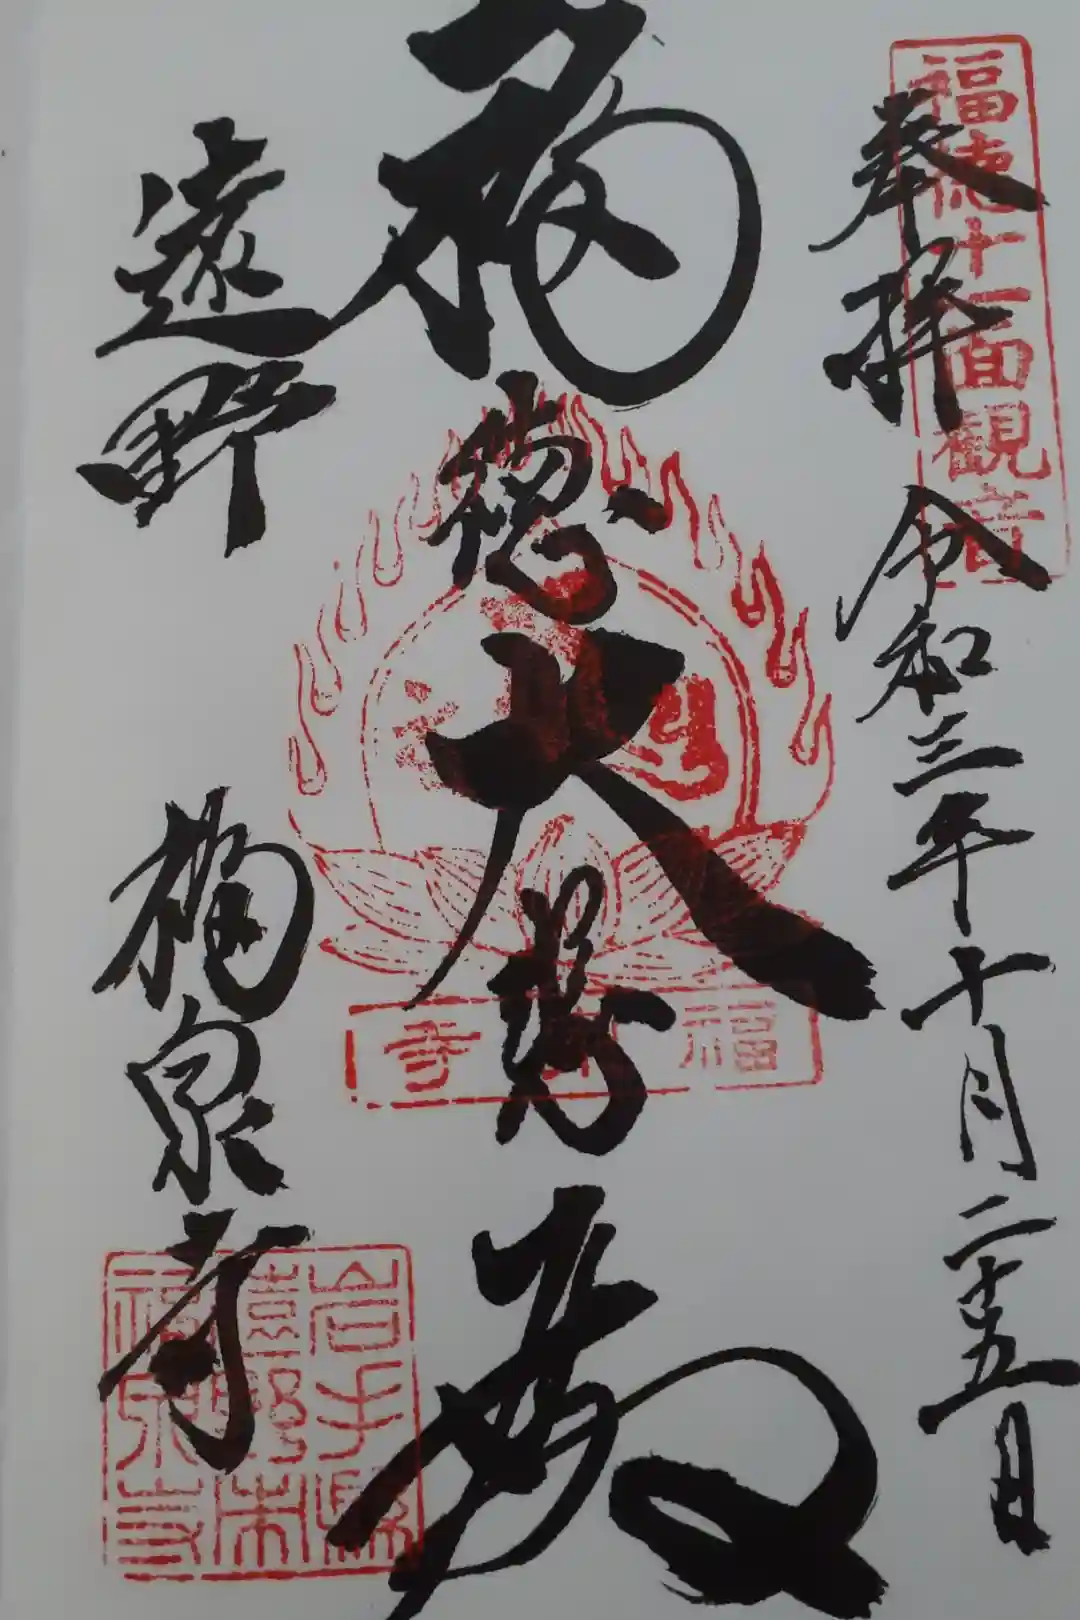 奉拝
令和三年十月二十五日
福徳十一面観音
福徳大悲殿
福 寺
遠野
福泉寺
岩手縣
遠野市
福泉寺